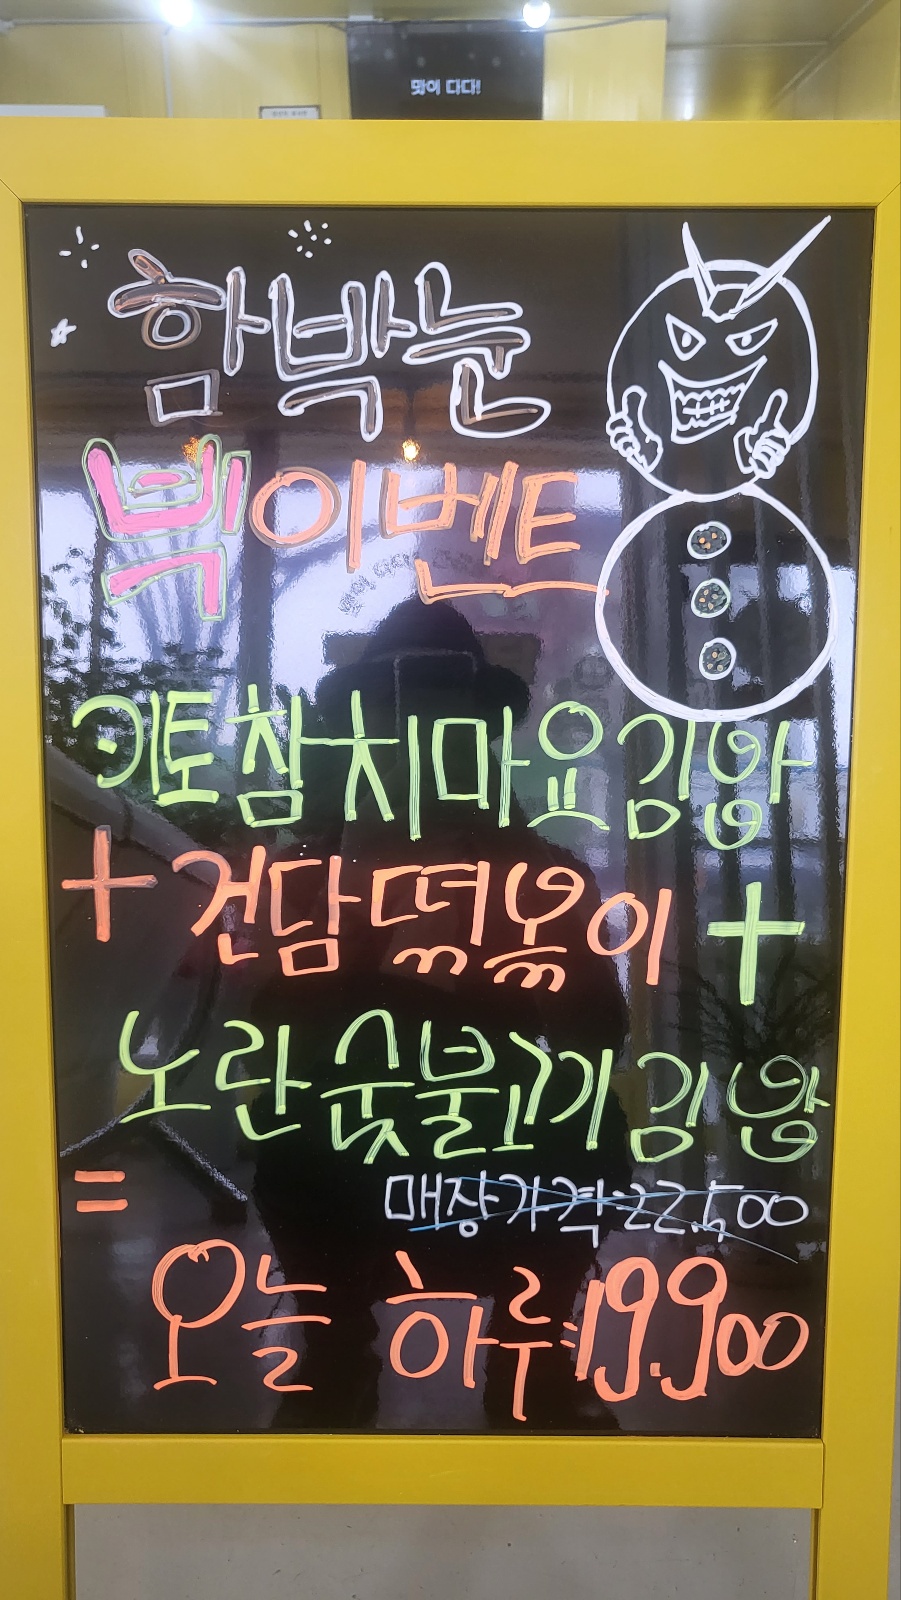 맛이 다다!
함박눈
빅이벤트
키토참치마요김밥
+ 건담떡볶이 +
노란숯불고기김밥
= 매장가격:22.500
오늘 하루:19.900